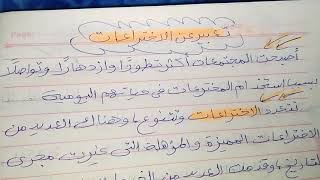 تعبير عن الاختراعات
أصبحت المجتمعات أكثر تطورًا وازدهارًا وتواصلًا
بسبب استخدام المخترعات في حياتهم اليومية
تتعدد الاختراعات وتتنوع، وهناك العديد من
الاختراعات المميزة والمؤهلة التي غيرت مجرى
التاريخ، وقدمت العديد من